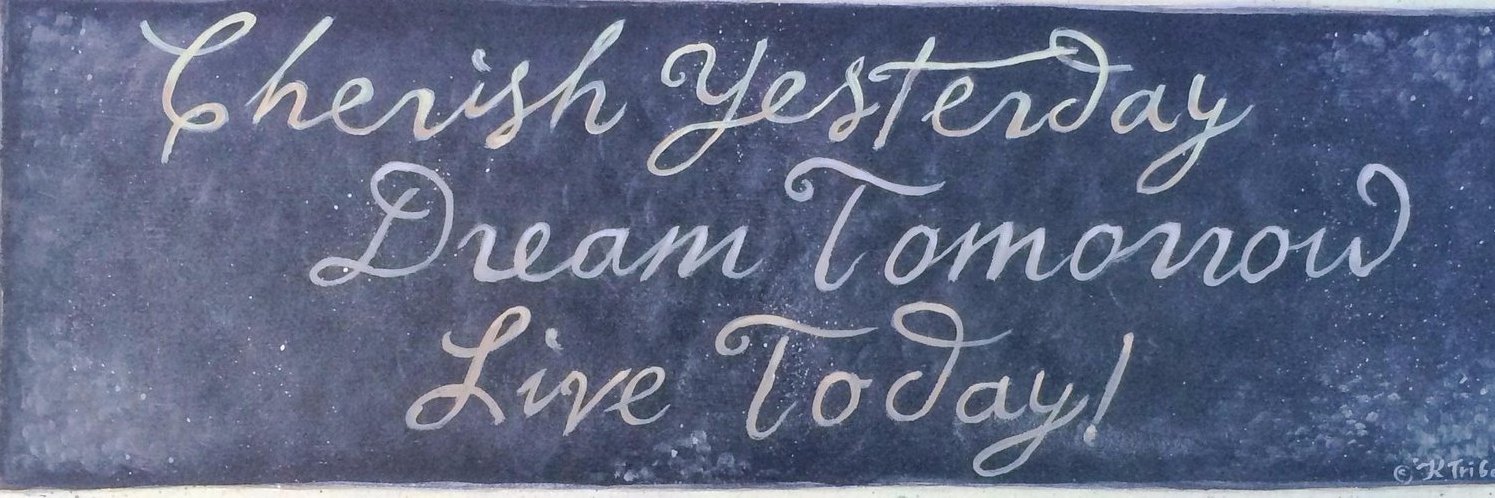 Cherish Yesterday
Dream Tomorrow
Live Today!